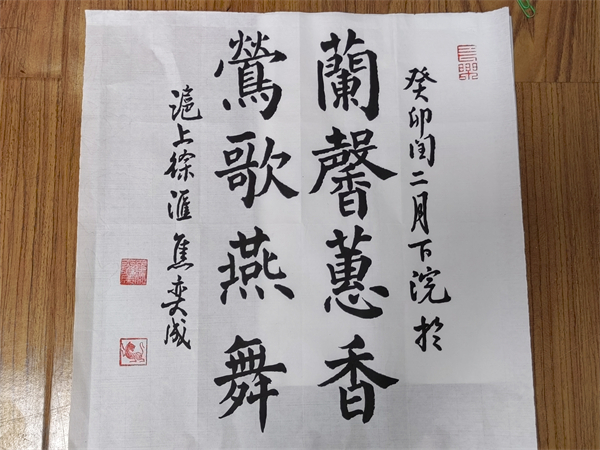 癸卯闰二月下浣於
蘭馨蕙香
鶯歌燕舞
滬上徐滙焦奕成